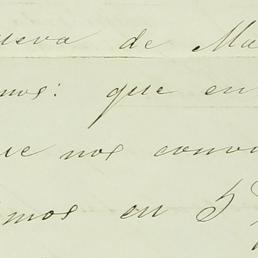 ueva de Ma
mos: que en
ue nos conv
mos en 5